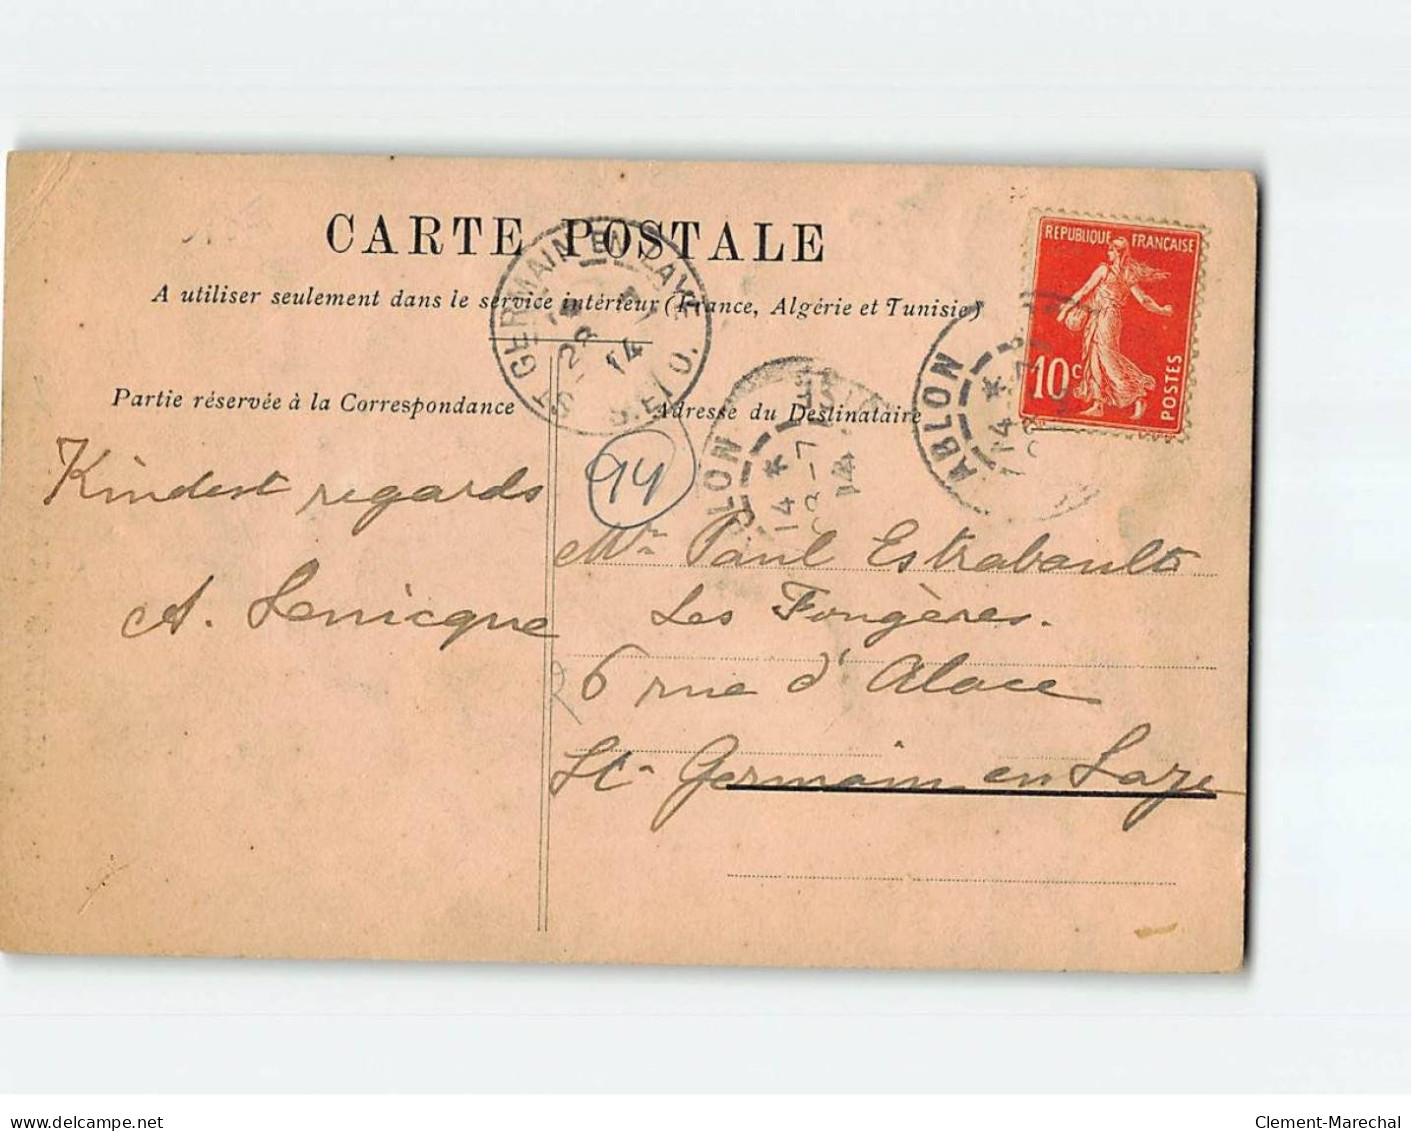 CARTE POSTALE
A utiliser seulement dans le service intérieur (France, Algérie et Tunisie)
REPUBLIQUE FRANÇAISE
10c
POSTES
ST GERMAIN EN LAYE
S. ET O.
28 7
14
ABLON
14 *
ABLON
14 *
28 -7
14
Partie réservée à la Correspondance
Adresse du Destinataire
94
Kindest regards
A. Lenicque
Mr Paul Estrabault
Les Fougères.
6 rue d'Alace
St- Germain en Laye
www.delcampe.net
Clement-Marechal